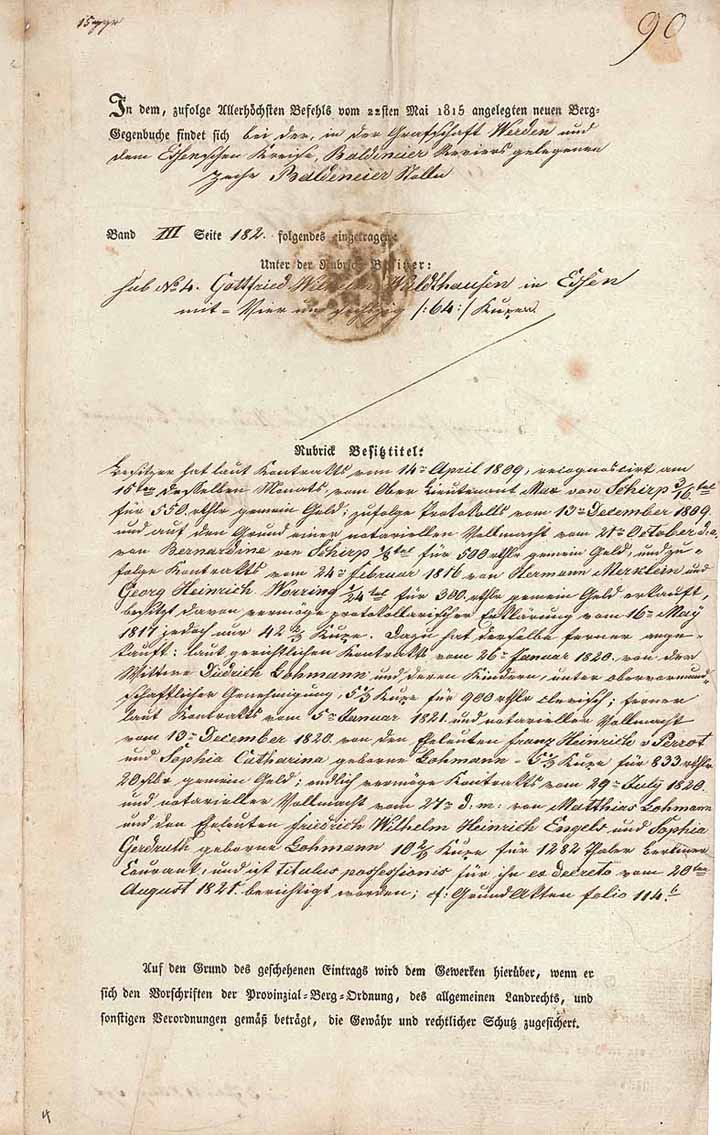 15 ggr
90
In dem, zufolge Allerhöchsten Befehls vom 22sten Mai 1815 angelegten neuen Berg-
Gegenbuche findet sich bei der, in der Grafschaft Werden und
dem Essenschen Kreise, Baldeneier Reviers gelegenen
Zeche Baldeneier Stolln
Band III Seite 182. folgendes eingetragen:
Unter der Rubrick Besitzer:
sub No 4. Gottfried Wilhelm Waldthausen in Essen
mit - Vier und sechzig /:64:/ Kuxen
Rubrick Besitztitel:
Besitzer hat laut Kontrakts vom 14n April 1809, recognoscirt am
15ten desselben Monats, vom Ober Lieutenant Max von Schirp 3/16 tel
für 550 rthlr gemein Geld; zufolge Protokolls vom 13n December 1809
und auf den Grund einer notariellen Vollmacht vom October d.a.
von Bernardine von Schirp 1/8 tel für 500 rthlr gemein Geld, und zu-
folge Kontrakts vom 24n Februar 1816 von Hermann Merklein und
Georg Heinrich Worring 1/24 tel für 300. rthlr gemein Geld erkauft,
besitzt davon vermöge protokollarischer Erklärung vom 16n May
1817 jedoch nur 42 2/3 Kuxe. Dazu hat derselbe ferner ange-
kauft: laut gerichtlichen Kontrakts vom 26n Januar 1820. von der
Wittwe Diedrich Lohmann und deren Kindern, unter obervormund-
schaftlicher Genehmigung, 5 1/3 Kuxe für 900 rthlr clevisch; ferner
laut Kontrakts vom 5n Januar 1821. und notarieller Vollmacht
vom December 1820. von den Eheleuten Franz Heinrich v Perrot
und Sophia Catharina geborne Lohmann - 5 1/3 Kuxe für 833 rthlr
20 stbr gemein Geld; endlich vermöge Kontrakts vom 29n July 1820.
und notarieller Vollmacht vom 27n d: m: von Matthias Lohmann
und den Eheleuten Friedrich Wilhelm Heinrich Engels und Sophia
Gerdruth geborne Lohmann 10 2/3 Kuxe für 1282 Thaler Berliner
Courant, und ist titulus possessionis für ihn ex decreto vom 20ten
August 1821. berichtigt worden; cf: Grund Akten folio 114 b
Auf den Grund des geschehenen Eintrags wird dem Gewerken hierüber, wenn er
sich den Vorschriften der Provinzial-Berg-Ordnung, des allgemeinen Landrechts, und
sonstigen Verordnungen gemäß beträgt, die Gewähr und rechtlicher Schutz zugesichert.